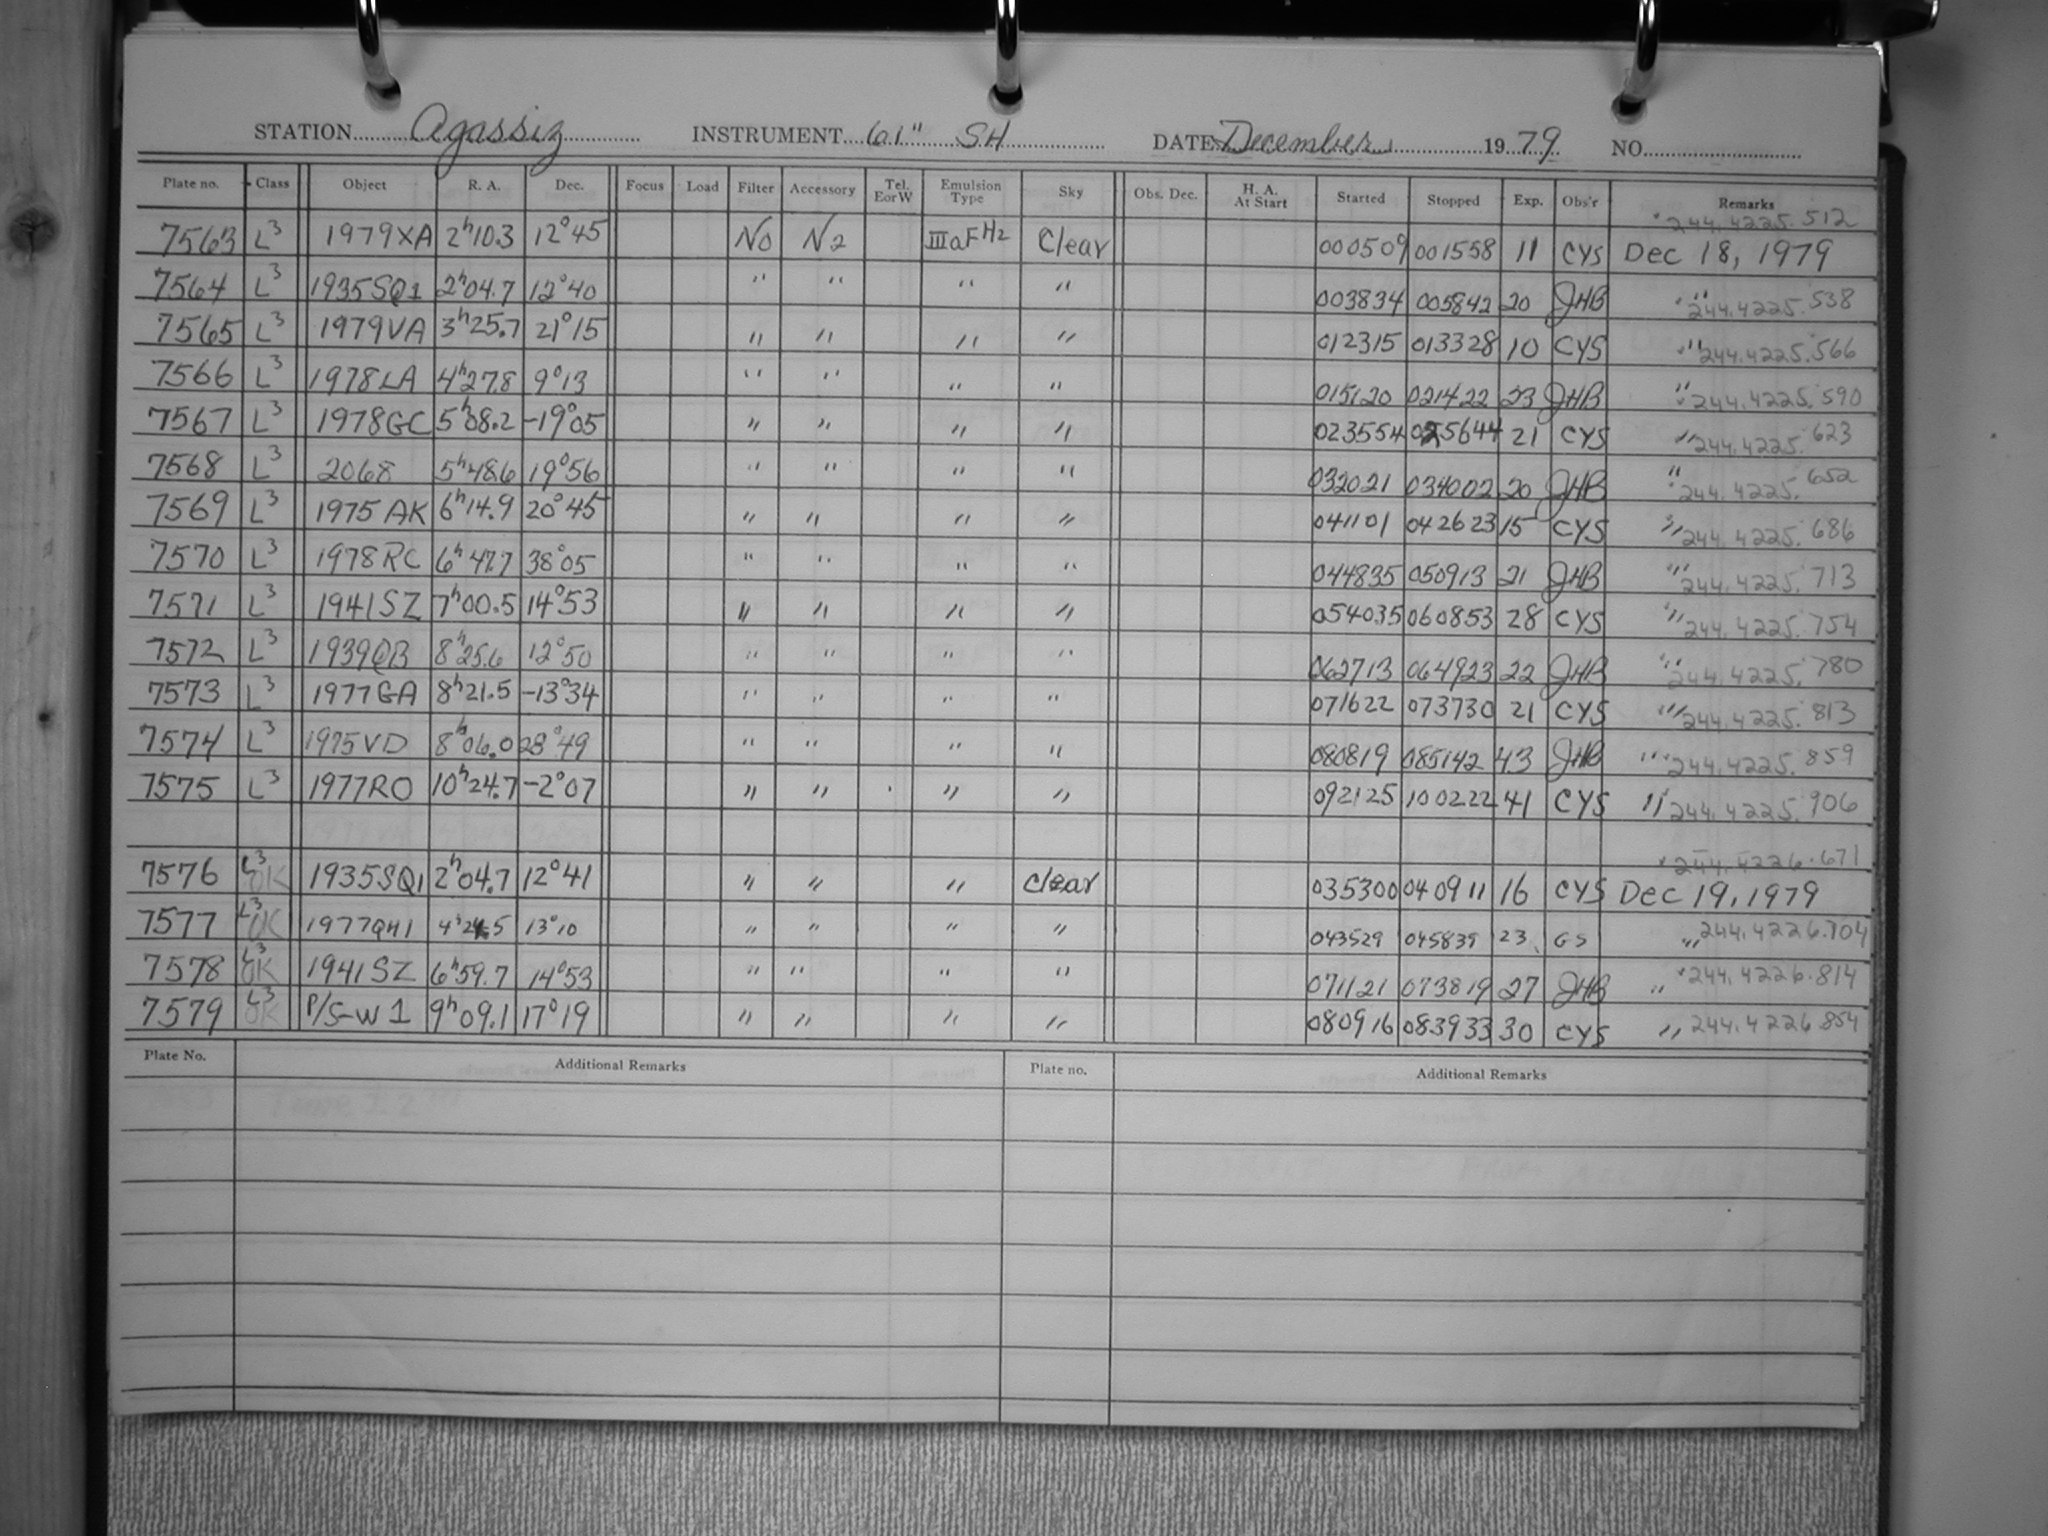 STATION Agassiz INSTRUMENT 61" SH DATE December 1979 NO.
Plate no. Class Object R. A. Dec. Focus Load Filter Accessory Tel. E or W Emulsion Type Sky Obs. Dec. H. A. At Start Started Stopped Exp. Obs'r Remarks
244.4225.512
7563 L3 1979XA 2h10.3 12°45 No N2 IIIaF H2 Clear 000509 001558 11 CYS Dec 18, 1979
7564 L3 1935SQ1 2h04.7 12°40 " " " " 003834 005842 20 JHB " 244.4225.538
7565 L3 1979VA 3h25.7 21°15 " " " " 012315 013328 10 CYS " 244.4225.566
7566 L3 1978LA 4h27.8 9°13 " " " " 015120 021422 23 JHB " 244.4225.590
7567 L3 1978GC 5h08.2 -19°05 " " " " 023554 025644 21 CYS " 244.4225.623
7568 L3 2068 5h48.6 19°56 " " " " 032021 034002 20 JHB " 244.4225.652
7569 L3 1975AK 6h14.9 20°45 " " " " 041101 042623 15 CYS " 244.4225.686
7570 L3 1978RC 6h47.7 38°05 " " " " 044835 050913 21 JHB " 244.4225.713
7571 L3 1941SZ 7h00.5 14°53 " " " " 054035 060853 28 CYS " 244.4225.754
7572 L3 1939QB 8h25.6 12°50 " " " " 062713 064923 22 JHB " 244.4225.780
7573 L3 1977GA 8h21.5 -13°34 " " " " 071622 073730 21 CYS " 244.4225.813
7574 L3 1975VD 8h06.0 28°49 " " " " 080819 085142 43 JHB " 244.4225.859
7575 L3 1977RO 10h24.7 -2°07 " " " " 092125 100222 41 CYS " 244.4225.906
244.4226.671
7576 L3 OK 1935SQ1 2h04.7 12°41 " " " Clear 035300 040911 16 CYS Dec 19, 1979
7577 L3 OK 1977QH1 13°10 " " " " 043529 045839 23 GS " 244.4226.704
7578 L3 OK 1941SZ 6h59.7 14°53 " " " " 071121 073819 27 JHB " 244.4226.814
7579 L3 OK P/S-W1 9h09.1 17°19 " " " " 080916 083933 30 CYS " 244.4226.854
Plate No. Additional Remarks Plate no. Additional Remarks